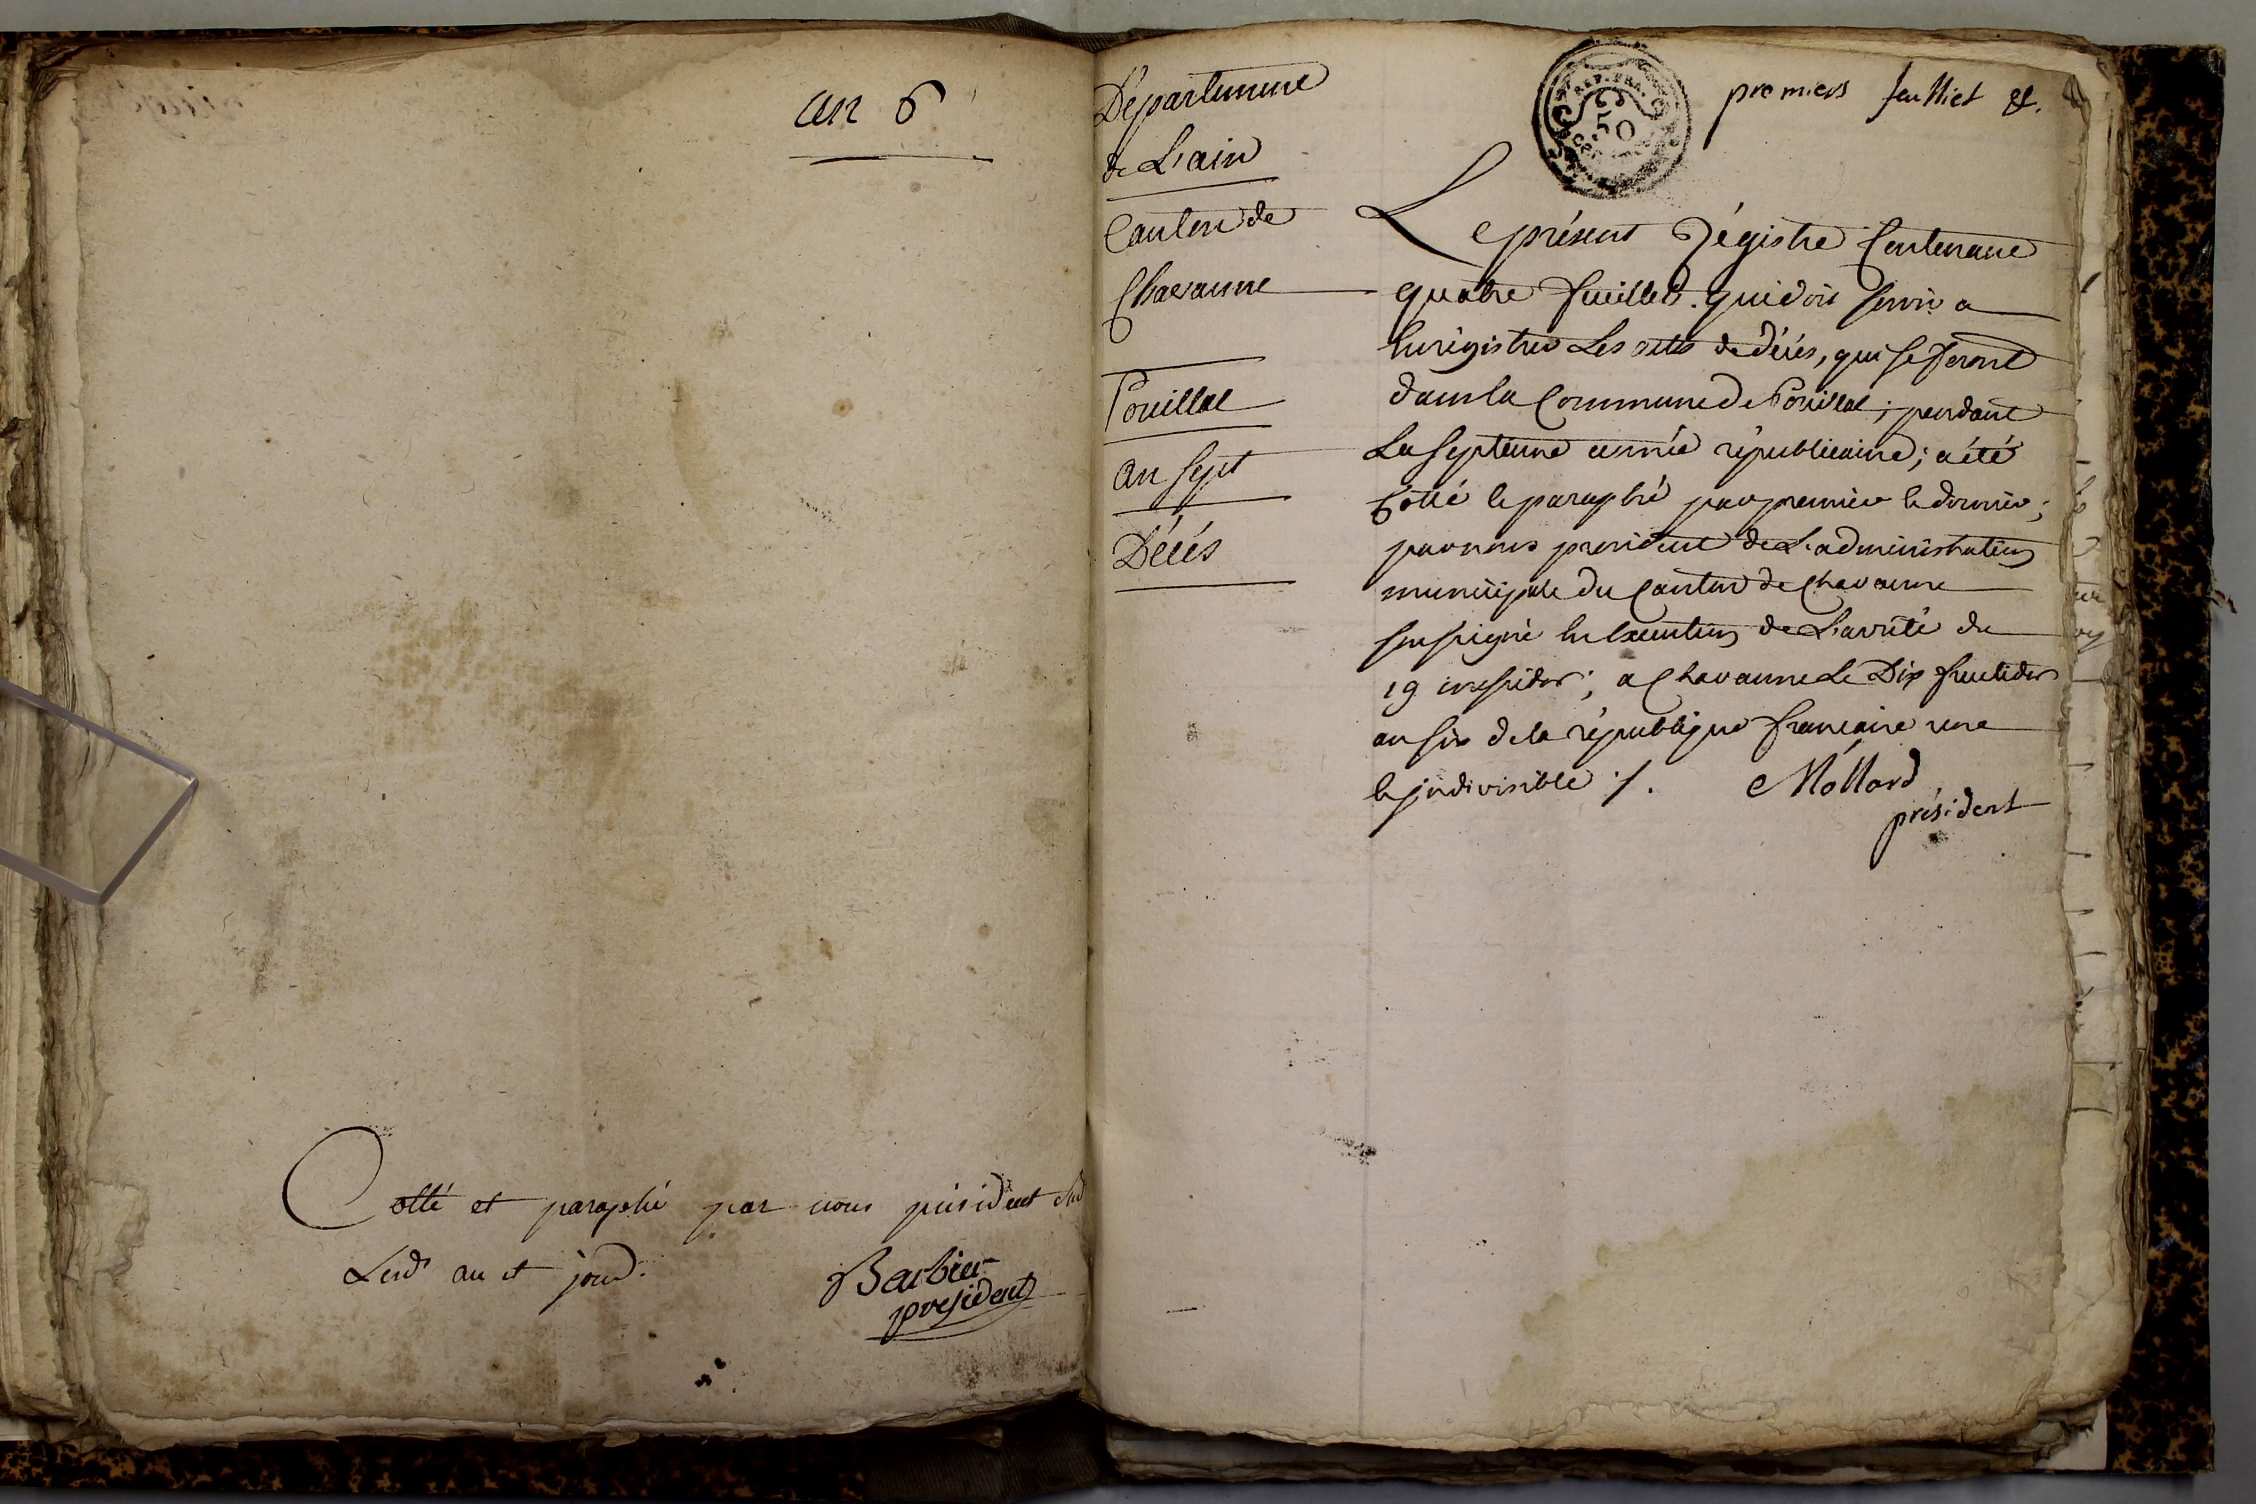 an 6
Cotté et paraphé par nous président
Lesd. an et jour.
Barbier
president
Departement
de L'ain
Canton de
Chavanne
Pouillat
an sept
Décés
50
premiers feulliet &.
Le présent Régistre Contenant
quatre feuillets. qui doit servir a
Enrégistrer Les actes de décés, qui se feront
dans la Commune de Pouillat ; pendant
La septieme année républicaine ; a été
Cotté et paraphé par premier et dernier ;
par nous president de L'administration
municipale du Canton de Chavanne
soussigné en Execution de L'arrêté du
19 messidor ; a Chavanne Le Dix fructidor
an six de la république francaine une
et jndivisible ./.
Mollard
président